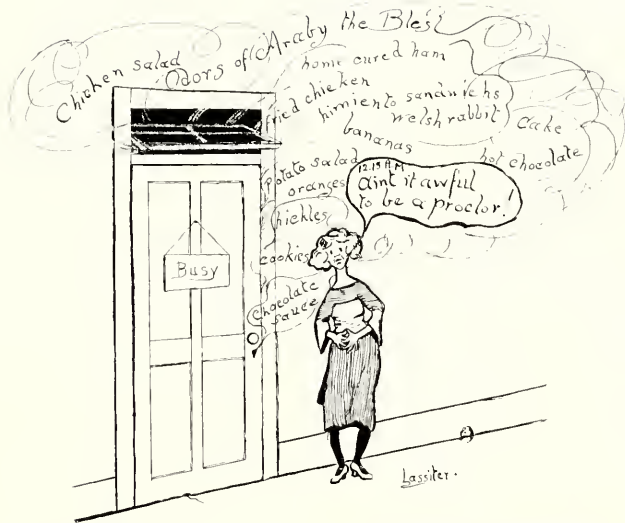 Odors of Araby the Bles't
Chicken salad
home cured ham
fried chicken
pimiento sandwichs
welsh rabbit
cake
bananas
hot chocolate
potato salad
oranges
pickles
cookies
chocolate
sauce
12.15 A.M
aint it awful
to be a proctor!
Busy
Lassiter.